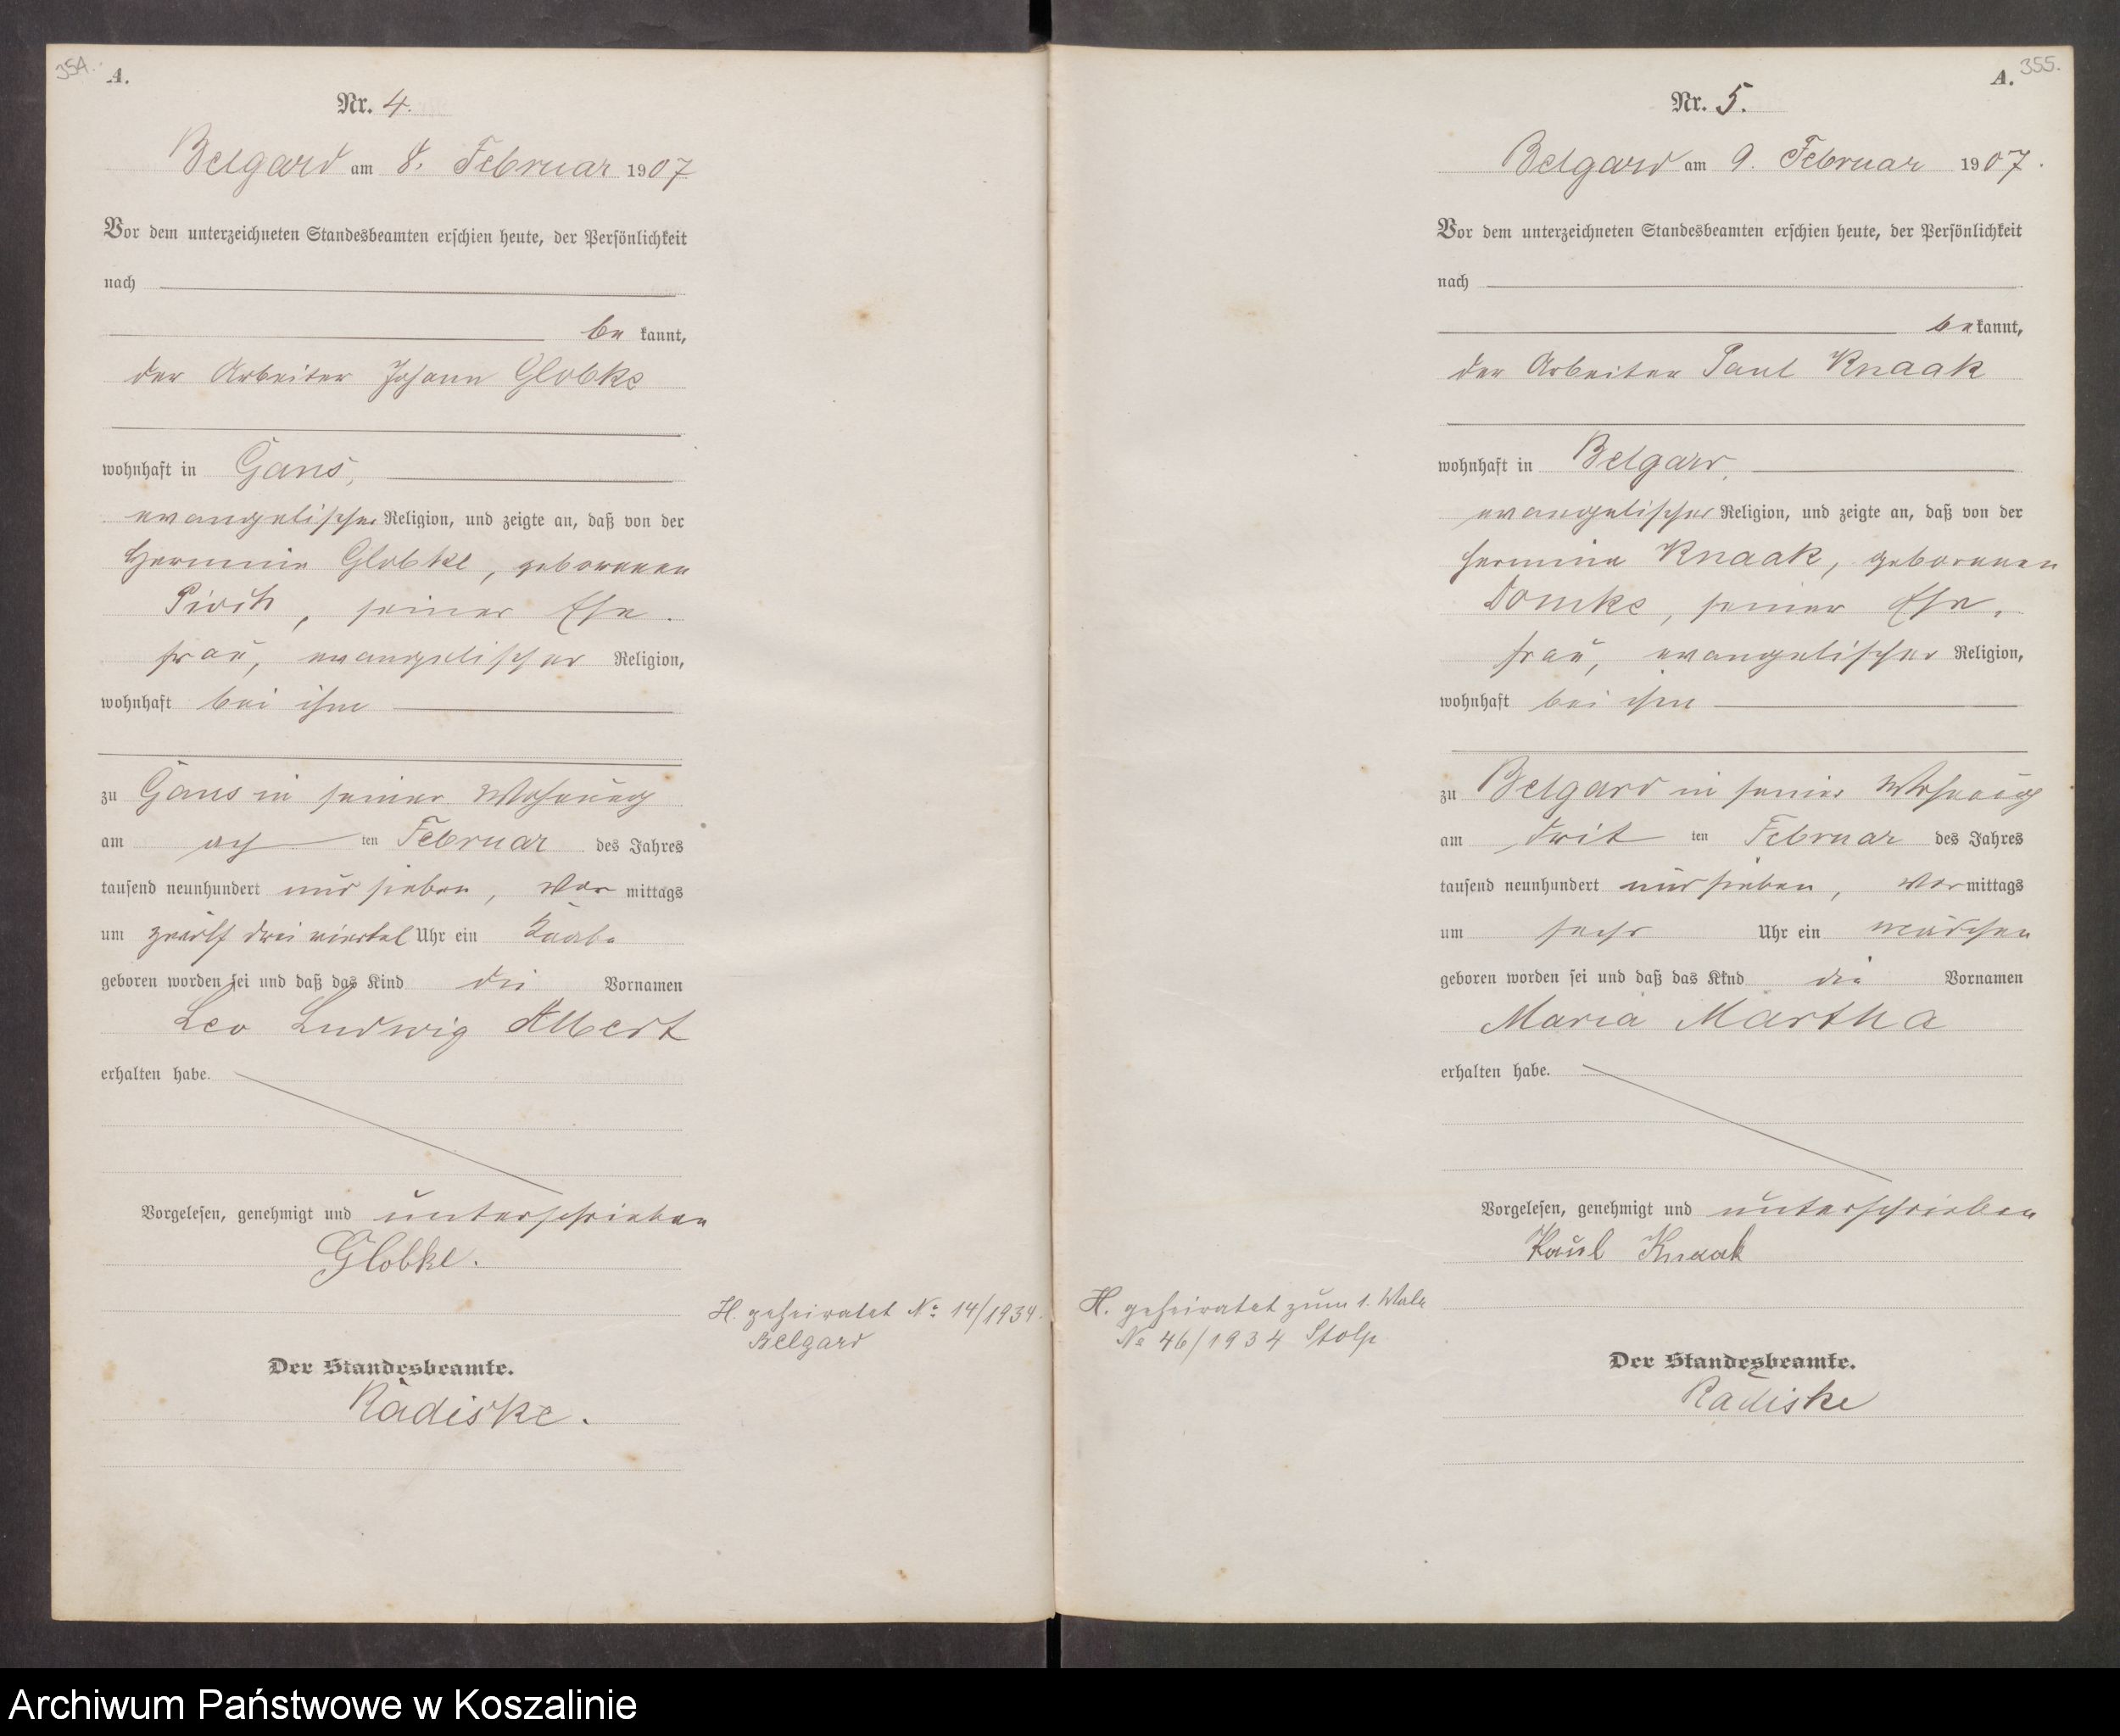 354.
A.
Nr. 4.
Belgard am 8. Februar 1907
Vor dem unterzeichneten Standesbeamten erschien heute, der Persönlichkeit
nach
be kannt,
der Arbeiter Johann Globke
wohnhaft in Gans,
evangelischer Religion, und zeigte an, daß von der
Hermine Globke, geborenen
Pioch, seiner Ehe-
frau, evangelischer Religion,
wohnhaft bei ihm
zu Gans in seiner Wohnung
am ach ten Februar des Jahres
tausend neunhundert und sieben, Vor mittags
um zwölf drei viertel Uhr ein Knabe
geboren worden sei und daß das Kind die Vornamen
Leo Ludwig Albert
erhalten habe.
Vorgelesen, genehmigt und unterschrieben
Globke.
H. geheiratet No 14/1934.
Belgard
Der Standesbeamte.
Radiske.
355.
A.
Nr. 5.
Belgard am 9. Februar 1907.
Vor dem unterzeichneten Standesbeamten erschien heute, der Persönlichkeit
nach
bekannt,
der Arbeiter Paul Knaak
wohnhaft in Belgard,
evangelischer Religion, und zeigte an, daß von der
Hermine Knaak, geborenen
Domke, seiner Ehe-
frau, evangelischer Religion,
wohnhaft bei ihm
zu Belgard in seiner Wohnung
am drit ten Februar des Jahres
tausend neunhundert und sieben, Vormittags
um sechs Uhr ein Mädchen
geboren worden sei und daß das Kind die Vornamen
Maria Martha
erhalten habe.
Vorgelesen, genehmigt und unterschrieben
Paul Knaak
H. geheiratet zum 1. Male
No 46/1934 Stolp
Der Standesbeamte.
Radiske
Archiwum Państwowe w Koszalinie